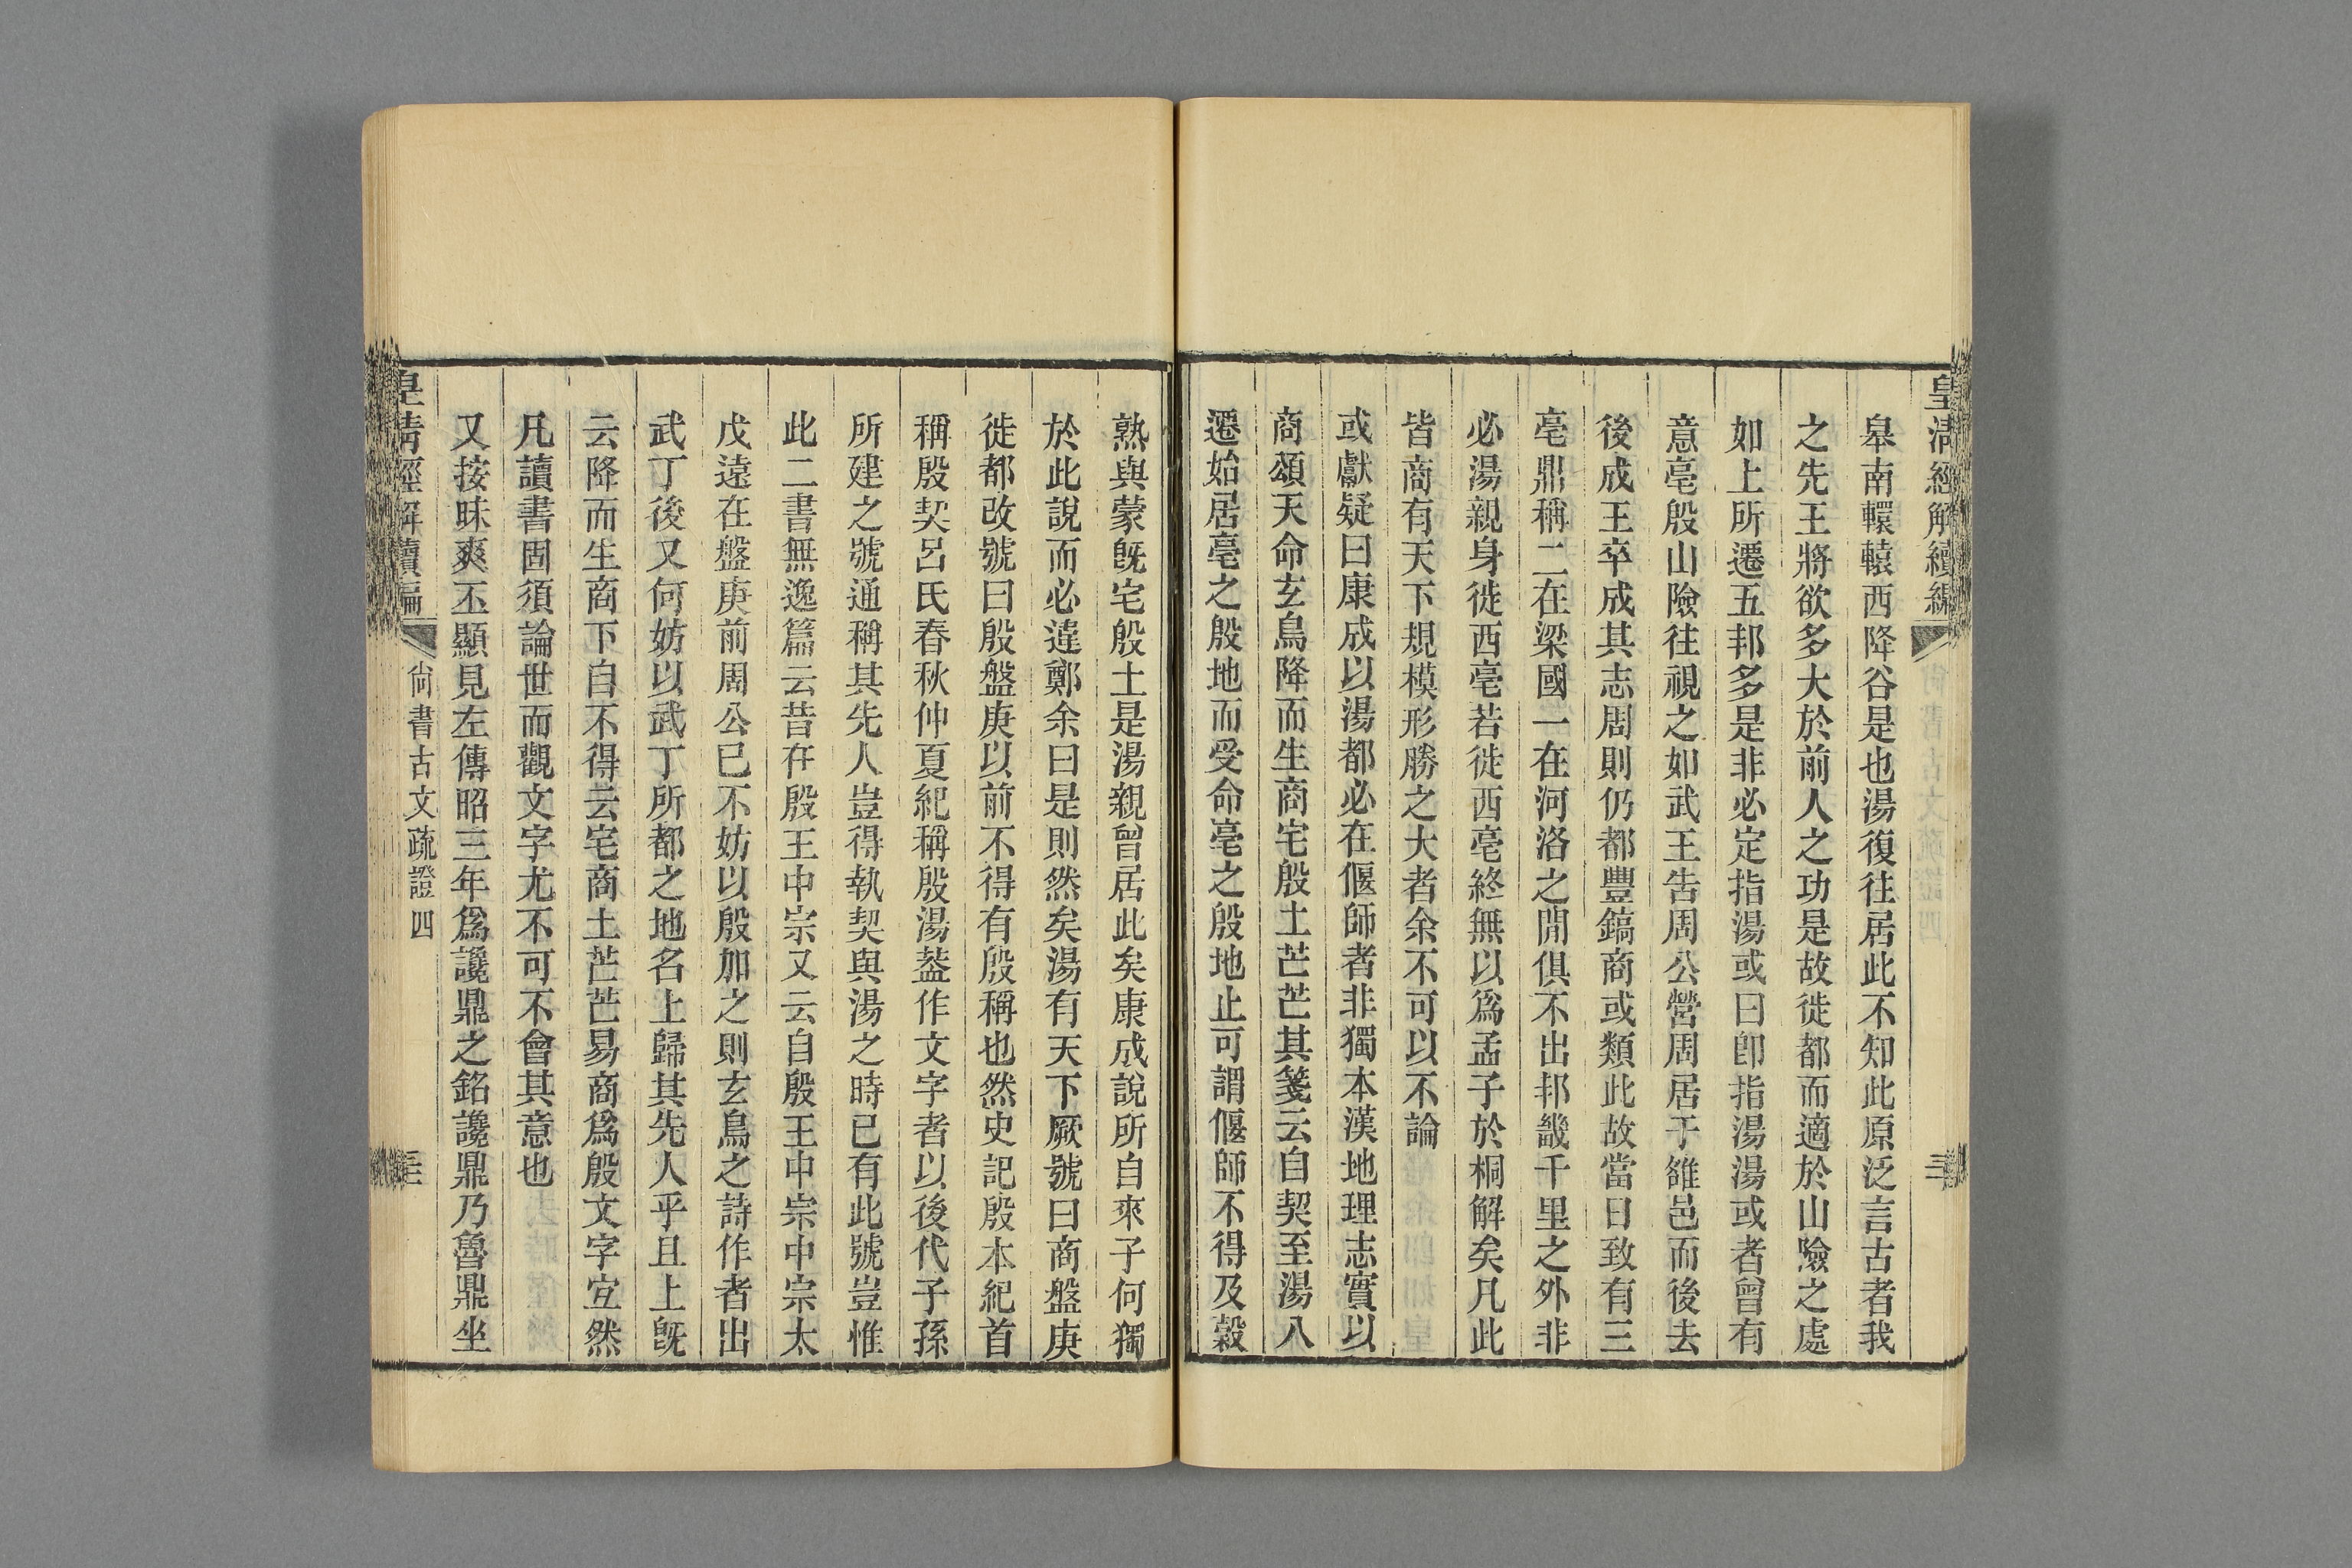 皇清經解續編
皋南轘轅西降谷是也湯復往居此不知此原泛言古者我
之先王將欲多大於前人之功是故徙都而適於山險之處
如上所遷五邦多是非必定指湯或曰卽指湯湯或者曾有
意亳殷山險往視之如武王告周公營周居于雒邑而後去
後成王卒成其志周則仍都豐鎬商或類此故當日致有三
亳鼎稱二在梁國一在河洛之閒俱不出邦畿千里之外非
必湯親身徙西亳若徙西亳終無以爲孟子於桐解矣凡此
皆商有天下規模形勝之大者余不可以不論
或獻疑曰康成以湯都必在偃師者非獨本漢地理志實以
商頌天命玄鳥降而生商宅殷土芒芒其箋云自契至湯八
遷始居亳之殷地而受命亳之殷地止可謂偃師不得及穀
熟與蒙旣宅殷土是湯親曾居此矣康成說所自來子何獨
於此說而必違鄭余曰是則然矣湯有天下厥號曰商盤庚
徙都改號曰殷盤庚以前不得有殷稱也然史記殷本紀首
稱殷契呂氏春秋仲夏紀稱殷湯葢作文字者以後代子孫
所建之號通稱其先人豈得執契與湯之時已有此號豈惟
此二書無逸篇云昔在殷王中宗又云自殷王中宗中宗太
戊遠在盤庚前周公已不妨以殷加之則玄鳥之詩作者出
武丁後又何妨以武丁所都之地名上歸其先人乎且上旣
云降而生商下自不得云宅商土芒芒易商爲殷文字宜然
凡讀書固須論世而觀文字尤不可不會其意也
又按昧爽丕顯見左傳昭三年爲讒鼎之銘讒鼎乃魯鼎坐
皇清經解續編
尙書古文疏證四